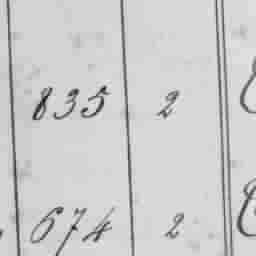 835 2
674 2